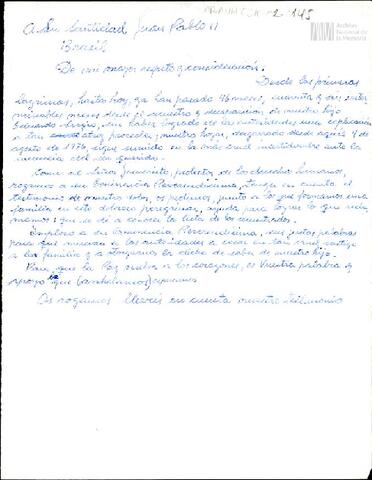 A Su Santidad Juan Pablo II
Brasil
De mi mayor respeto y consideración:
Desde las primeras
lagrimas, hasta hoy, ya han pasado 46 meses, cuarenta y seis inter
minables meses desde el secuestro y desaparición, de nuestro hijo
Eduardo Sergio, sin haber logrado de las autoridades una explicación
a tan atroz proceder, nuestro hogar, desgarrado desde aquel 4 de
agosto de 1976, sigue sumido en la más cruel incertidumbre ante la
ausencia del ser querido.
Como el Señor, protector de los derechos humanos,
rogamos a su Eminencia Reverendísima, tenga en cuenta el
testimonio de nuestro dolor, os pedimos, junto a los que formamos una
familia en este doloroso peregrinar, ayuda para lograr lo que recla
mamos: que se dé a conocer la lista de los secuestrados.
Imploro a su Eminencia Reverendísima, sus justas palabras
para que muevan a las autoridades a cesar en tan cruel castigo
a las familias y otorgarnos la dicha de saber de nuestro hijo.
Para que la Paz vuelva a los corazones, es Vuestra palabra y
apoyo lo que
Os rogamos llevéis en cuenta nuestro testimonio
Archivo
Nacional de
la Memoria